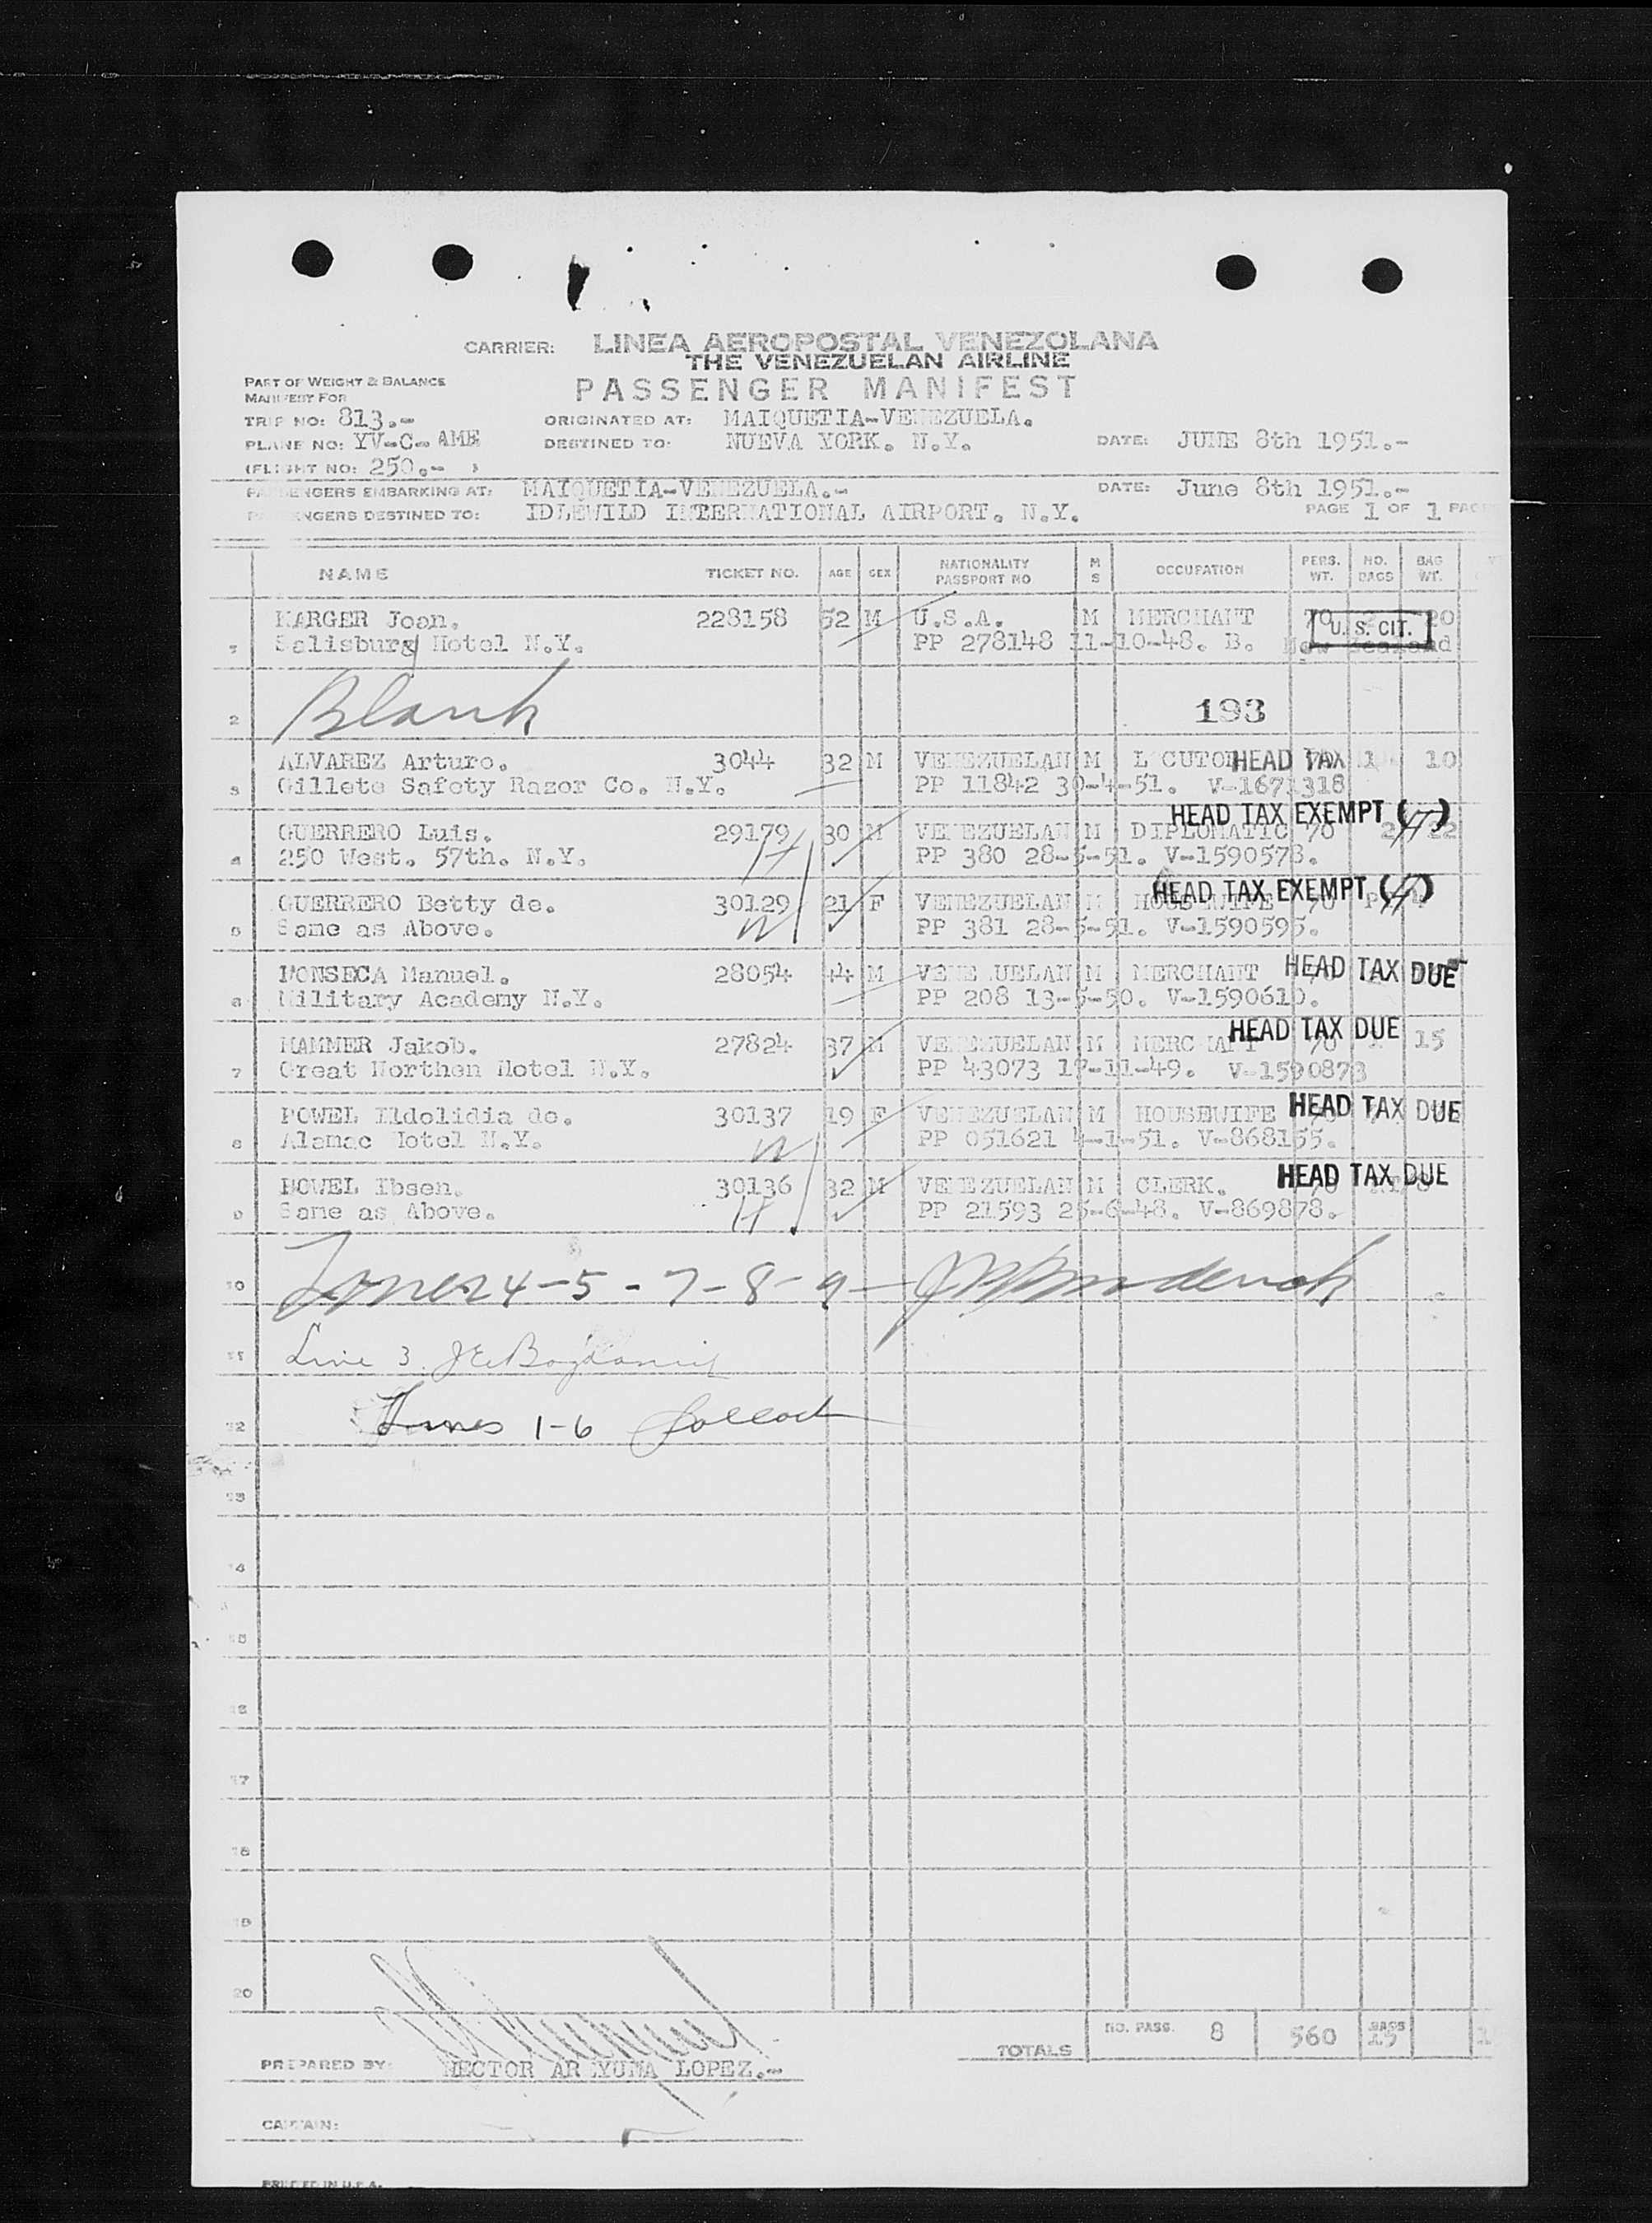 CARRIER: LINEA AEROPOSTAL VENEZOLANA
THE VENEZUELAN AIRLINE
PASSENGER MANIFEST
PART OF WEIGHT & BALANCE
MANIFEST FOR
TRIP NO: 813.- ORIGINATED AT: MAIQUETIA-VENEZUELA.
PLANE NO: YV-C-AME DESTINED TO: NUEVA YORK. N.Y. DATE: JUNE 8th 1951.-
(FLIGHT NO: 250.- )
PASSENGERS EMBARKING AT: MAIQUETIA-VENEZUELA.- DATE: June 8th 1951.-
PASSENGERS DESTINED TO: IDLEWILD INTERNATIONAL AIRPORT. N.Y. PAGE 1 OF 1
NAME TICKET NO. AGE SEX NATIONALITY PASSPORT NO M S OCCUPATION PERS. WT. NO. BAGS BAG WT.
KARGER Joan. 228158 52 M U.S.A. M MERCHANT 70 20
U. S. CIT.
1 Salisburg Hotel N.Y. PP 278148 11-10-48. B. New Zealand
2 Blank 193
ALVAREZ Arturo. 3044 32 M VENEZUELAN M LOCUTOR HEAD TAX 1 10
3 Gillete Safety Razor Co. N.Y. PP 11842 30-4-51. V-1671318
HEAD TAX EXEMPT
GUERRERO Luis. 29179 30 M VENEZUELAN M DIPLOMATIC 70 2 22
4 250 West. 57th. N.Y. PP 380 28-5-51. V-1590578.
HEAD TAX EXEMPT
GUERRERO Betty de. 30129 21 F VENEZUELAN M HOUSEWIFE 70
5 Same as Above. PP 381 28-5-51. V-1590595.
FONSECA Manuel. 28054 44 M VENEZUELAN M MERCHANT HEAD TAX DUE
6 Military Academy N.Y. PP 208 13-5-50. V-1590610.
HEAD TAX DUE
HAMMER Jakob. 27824 37 M VENEZUELAN M MERCHANT 70 15
7 Great Northen Hotel N.Y. PP 43073 17-11-49. V-1590873
POWEL Ildolidia de. 30137 19 F VENEZUELAN M HOUSEWIFE HEAD TAX DUE
8 Alamac Hotel N.Y. PP 051621 4-1-51. V-868155.
POWEL Ibsen. 30136 32 M VENEZUELAN M CLERK. HEAD TAX DUE
9 Same as Above. PP 21593 25-6-48. V-869878.
10 Lines 4-5-7-8-9-
11 Line 3
12 Lines 1-6
13
14
15
16
17
18
19
20
TOTALS NO. PASS. 8 560 BAGS 15
PREPARED BY: HECTOR ARAYUNA LOPEZ.-
CAPTAIN:
PRINTED IN U.S.A.